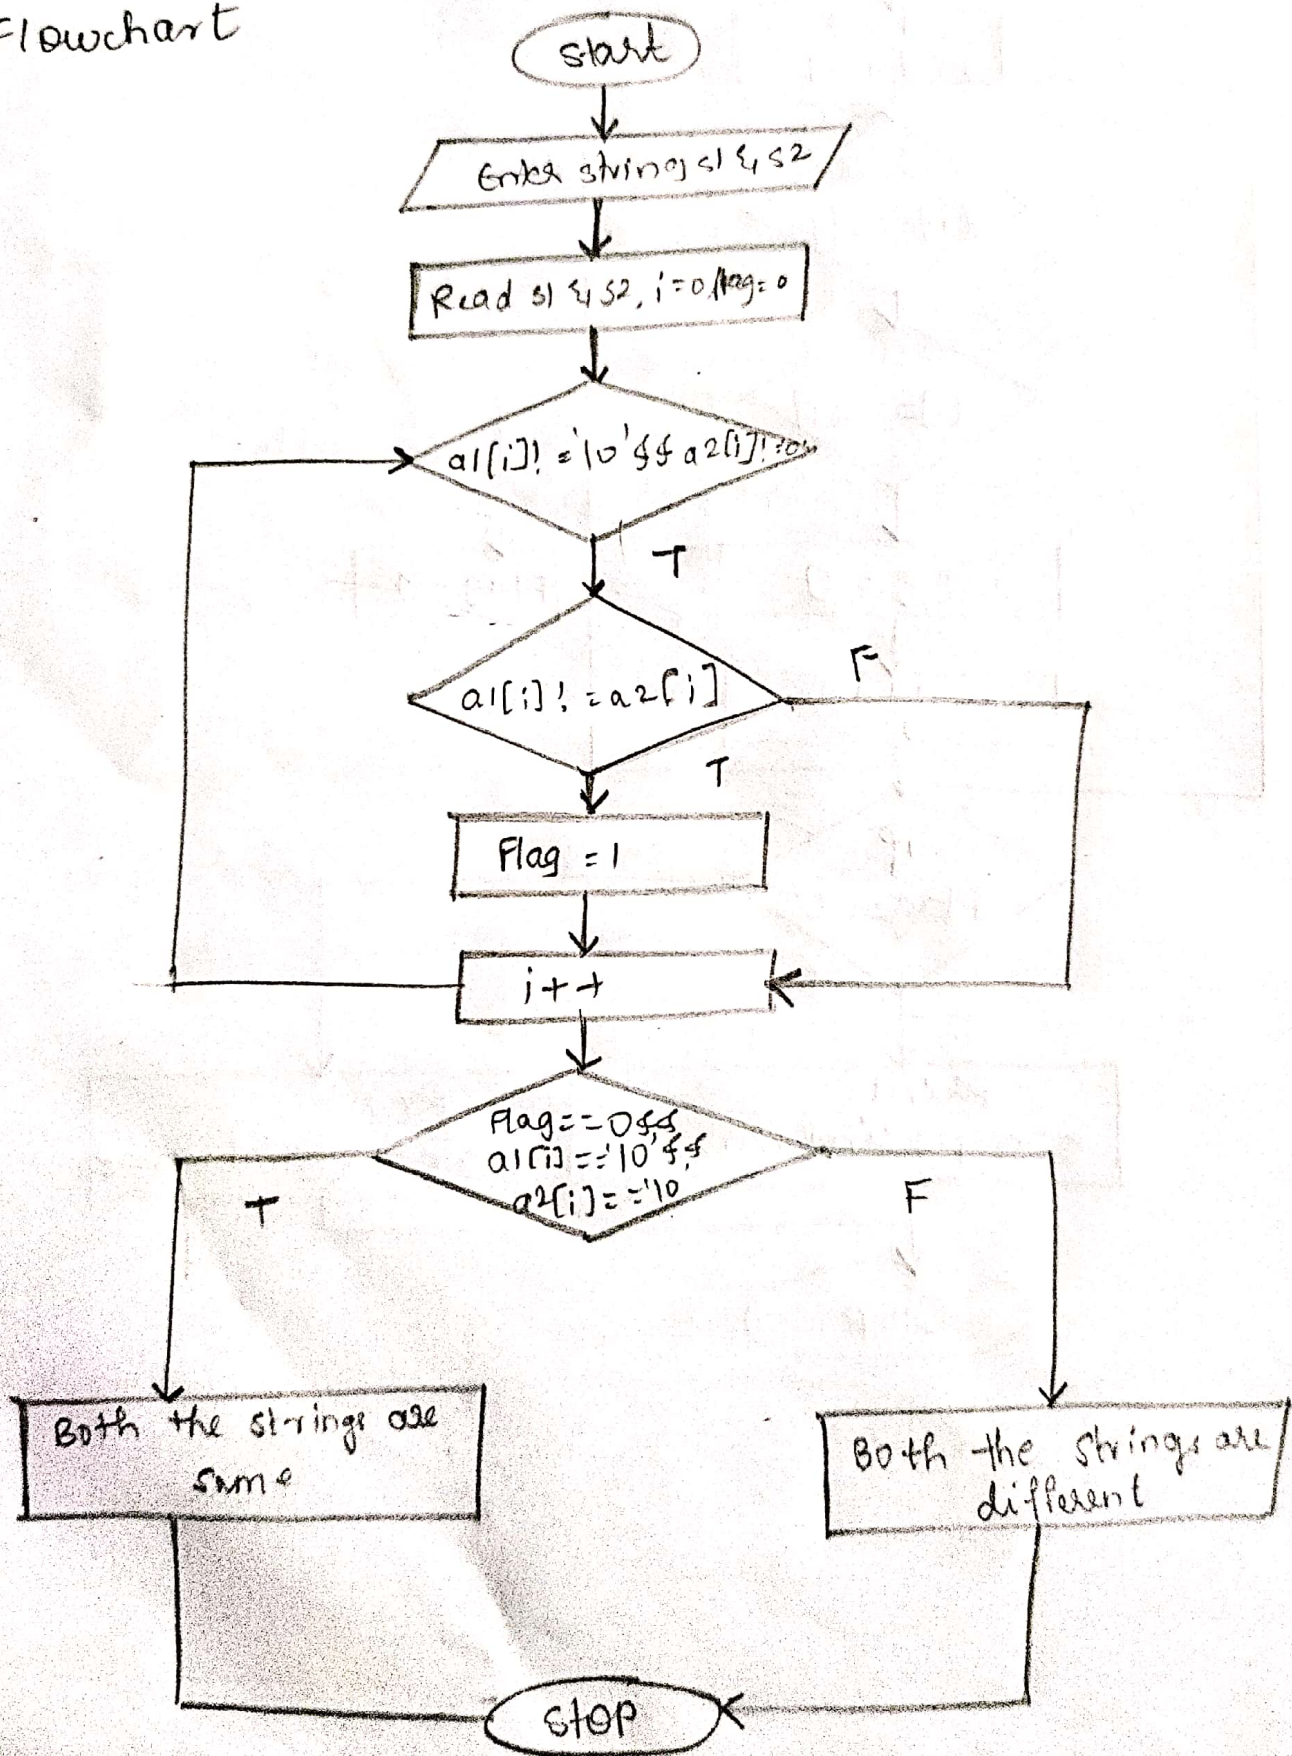 Flowchart
start
Enter strings s1 & s2
Read s1 & s2, i=0, flag=0
a1[i]! = '\0' && a2[i]!
T
a1[i]! = a2[i]
F
T
Flag = 1
i++
Flag==0 &&
a1[i] == '\0' &&
a2[i] == '\0
T
F
Both the strings are
same
Both the strings are
different
stop